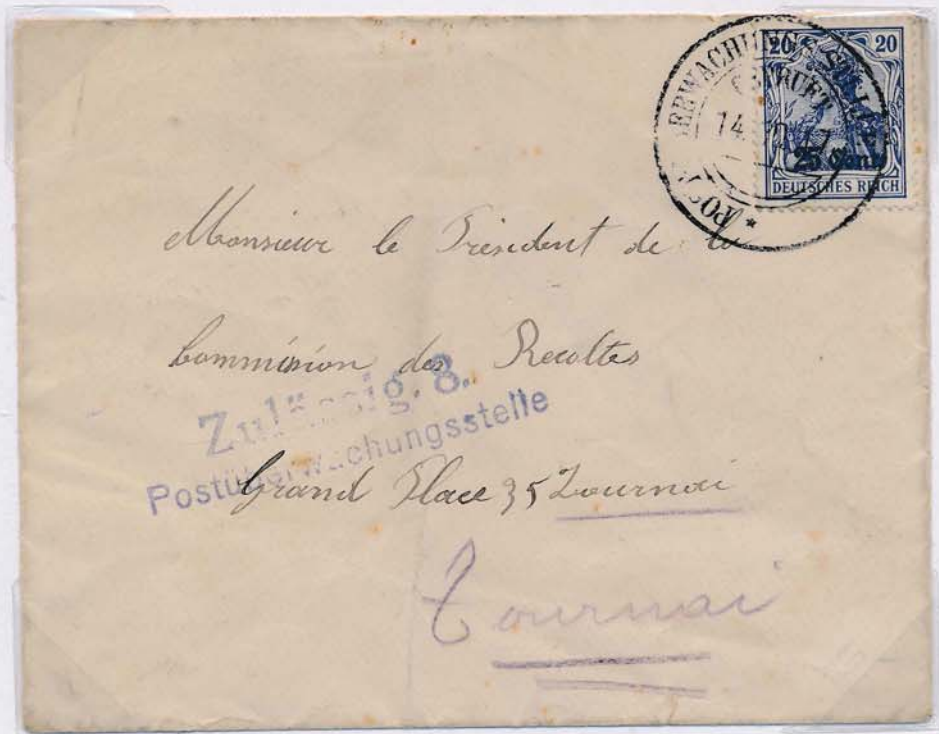 20 20
25 Cent.
DEUTSCHES REICH
14.
Monsieur le Président de la
Commission des Recoltes
Zulässig. 8.
Postüberwachungsstelle
Grand Place 35 Tournai
Tournai